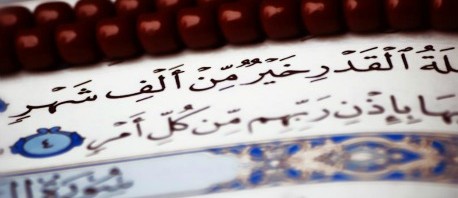 لَةُ ٱلْقَدْرِ خَيْرٌ مِّنْ أَلْفِ شَهْرٍ
هَا بِإِذْنِ رَبِّهِم مِّن كُلِّ أَمْرٍ ٤
سُورَةُ